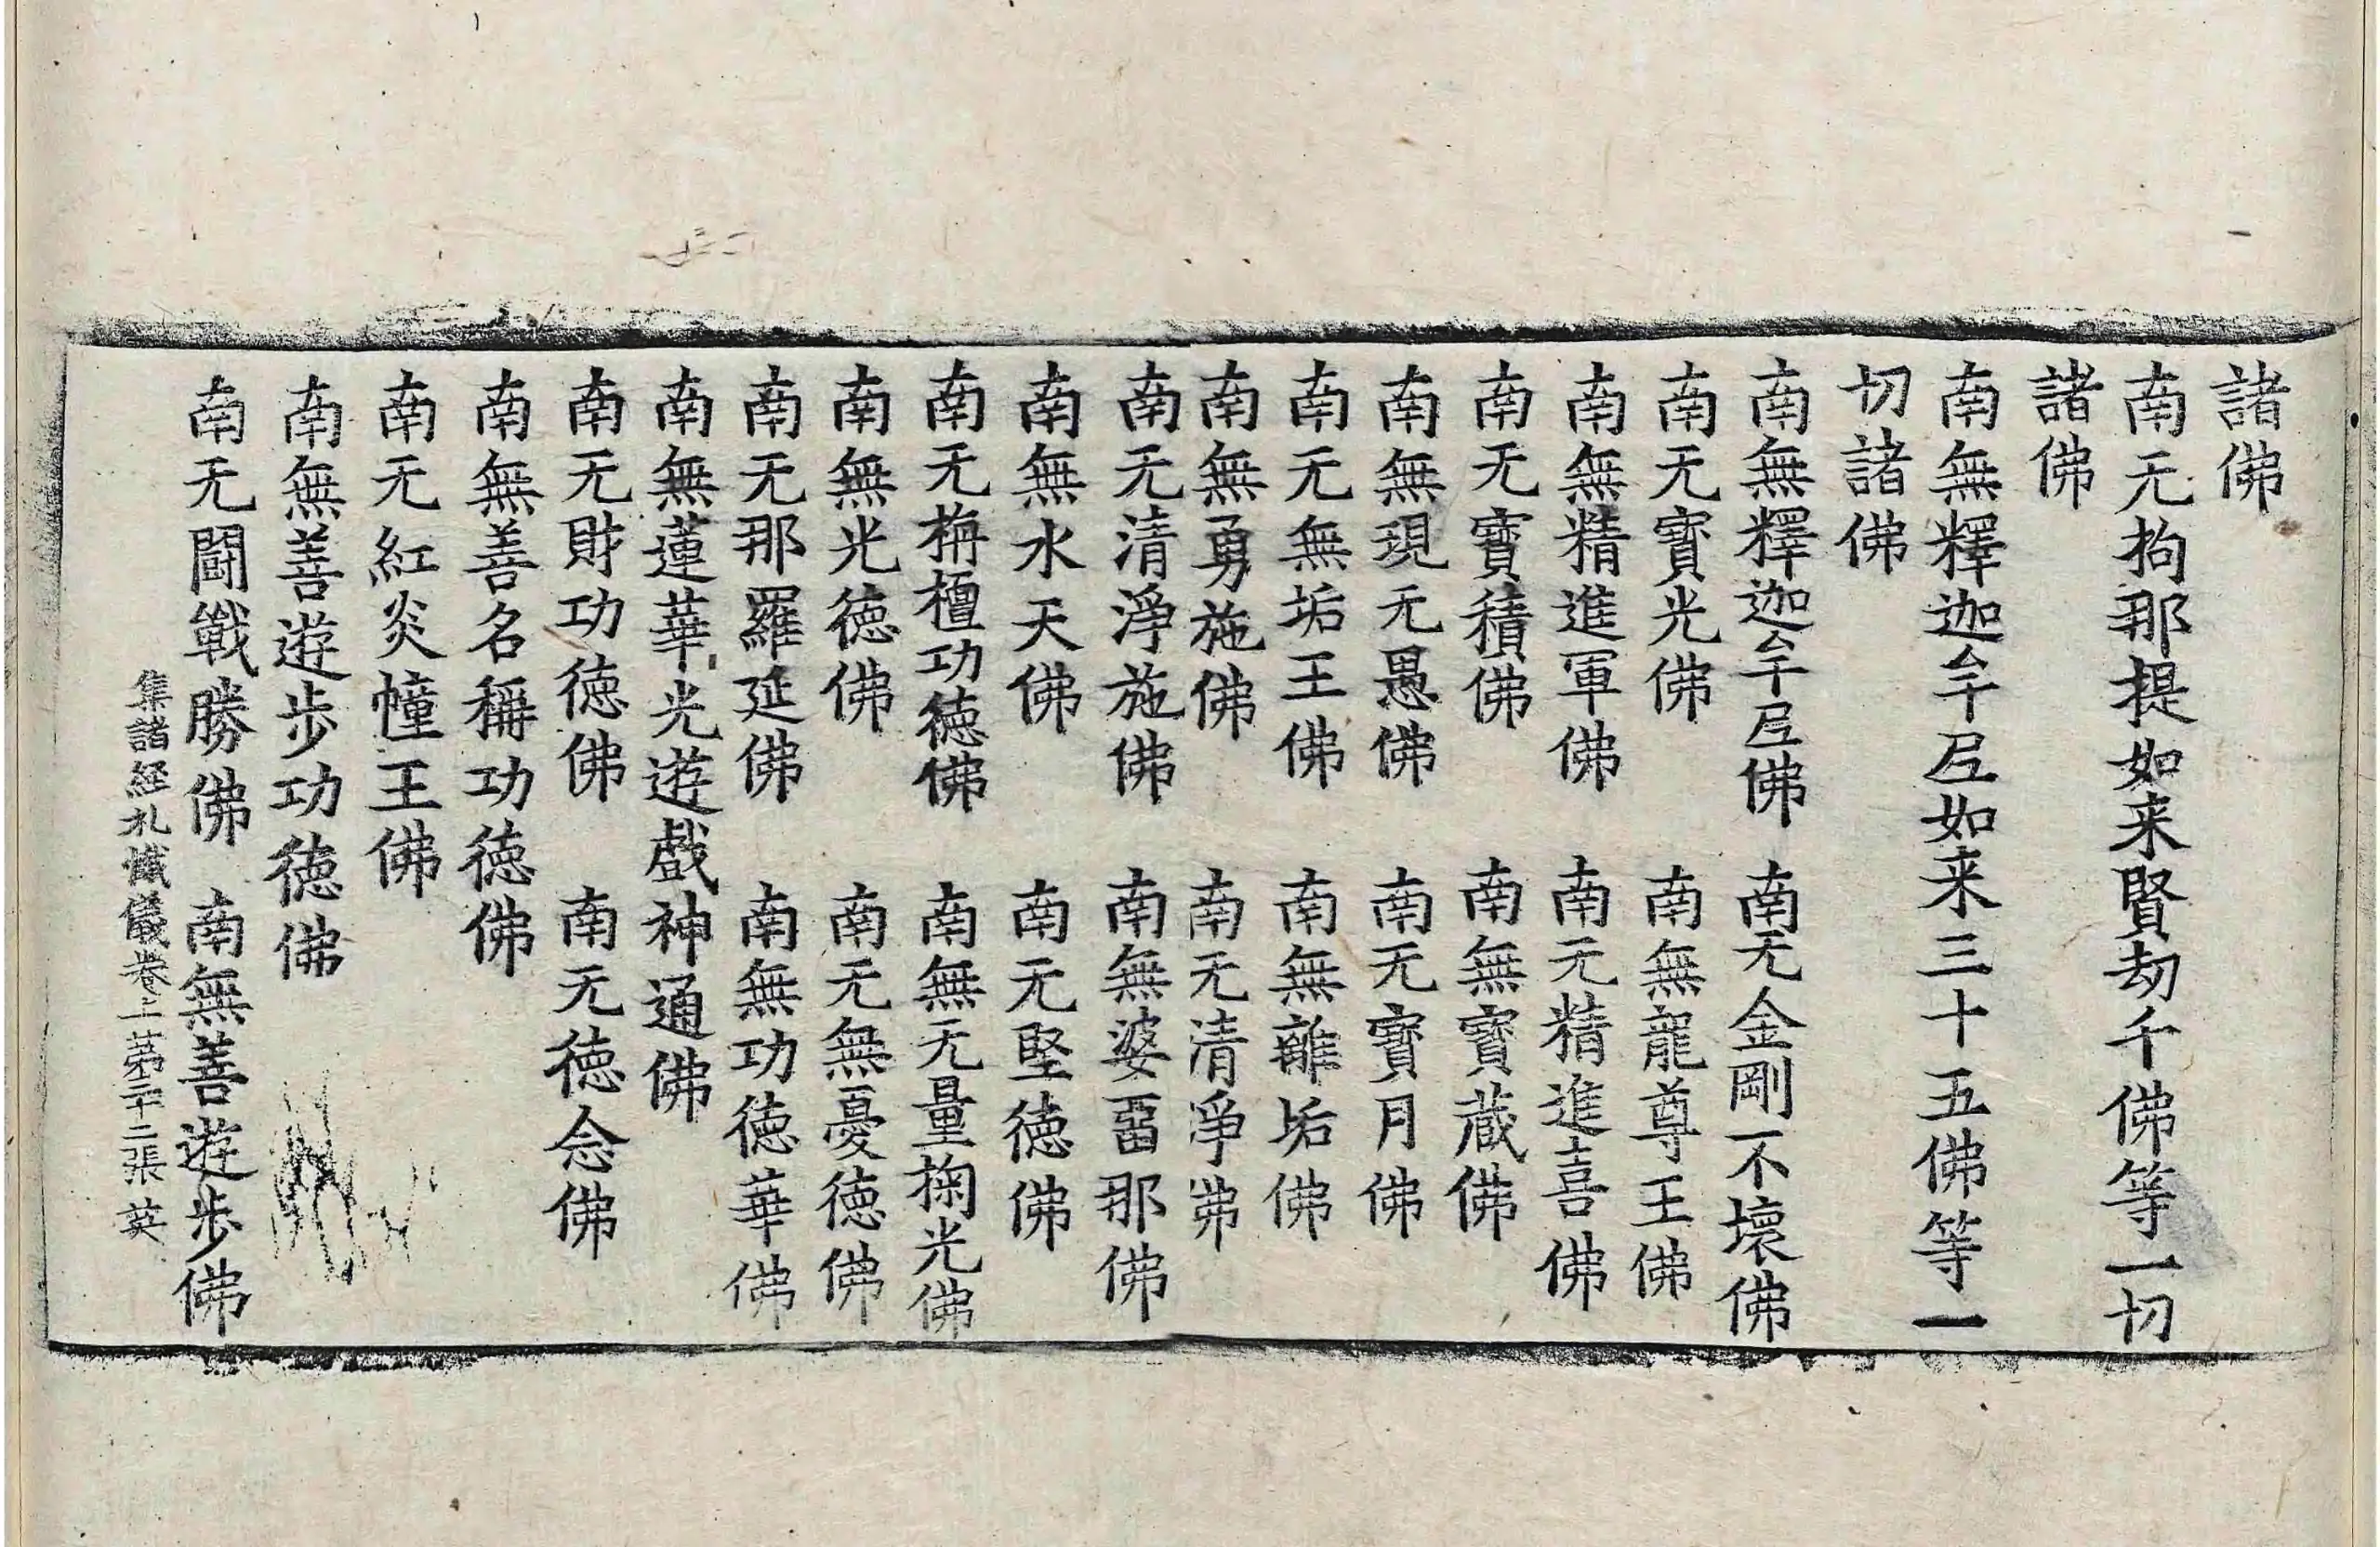 諸佛
南无拘那提如来賢劫千佛等一切
諸佛
南無釋迦牟尼如来三十五佛等一
切諸佛
南無釋迦牟尼佛　南无金剛不壞佛
南无寳光佛　南無龍尊王佛
南無精進軍佛　南无精進喜佛
南无寳積佛　南無寳蔵佛
南無現无愚佛　南无寳月佛
南无無垢王佛　南無離垢佛
南無勇施佛　南无清淨佛
南无清淨施佛　南無婆畱那佛
南無水天佛　南无堅徳佛
南无栴檀功徳佛　南無无量掬光佛
南無光徳佛　南无無憂徳佛
南无那羅延佛　南無功徳華佛
南無蓮華光遊戲神通佛
南无財功徳佛　南无徳念佛
南無善名稱功徳佛
南无紅炎幢王佛
南無善遊步功徳佛
南无闘戰勝佛　南無善遊步佛
集諸経礼懺儀卷上　第二十二張　英